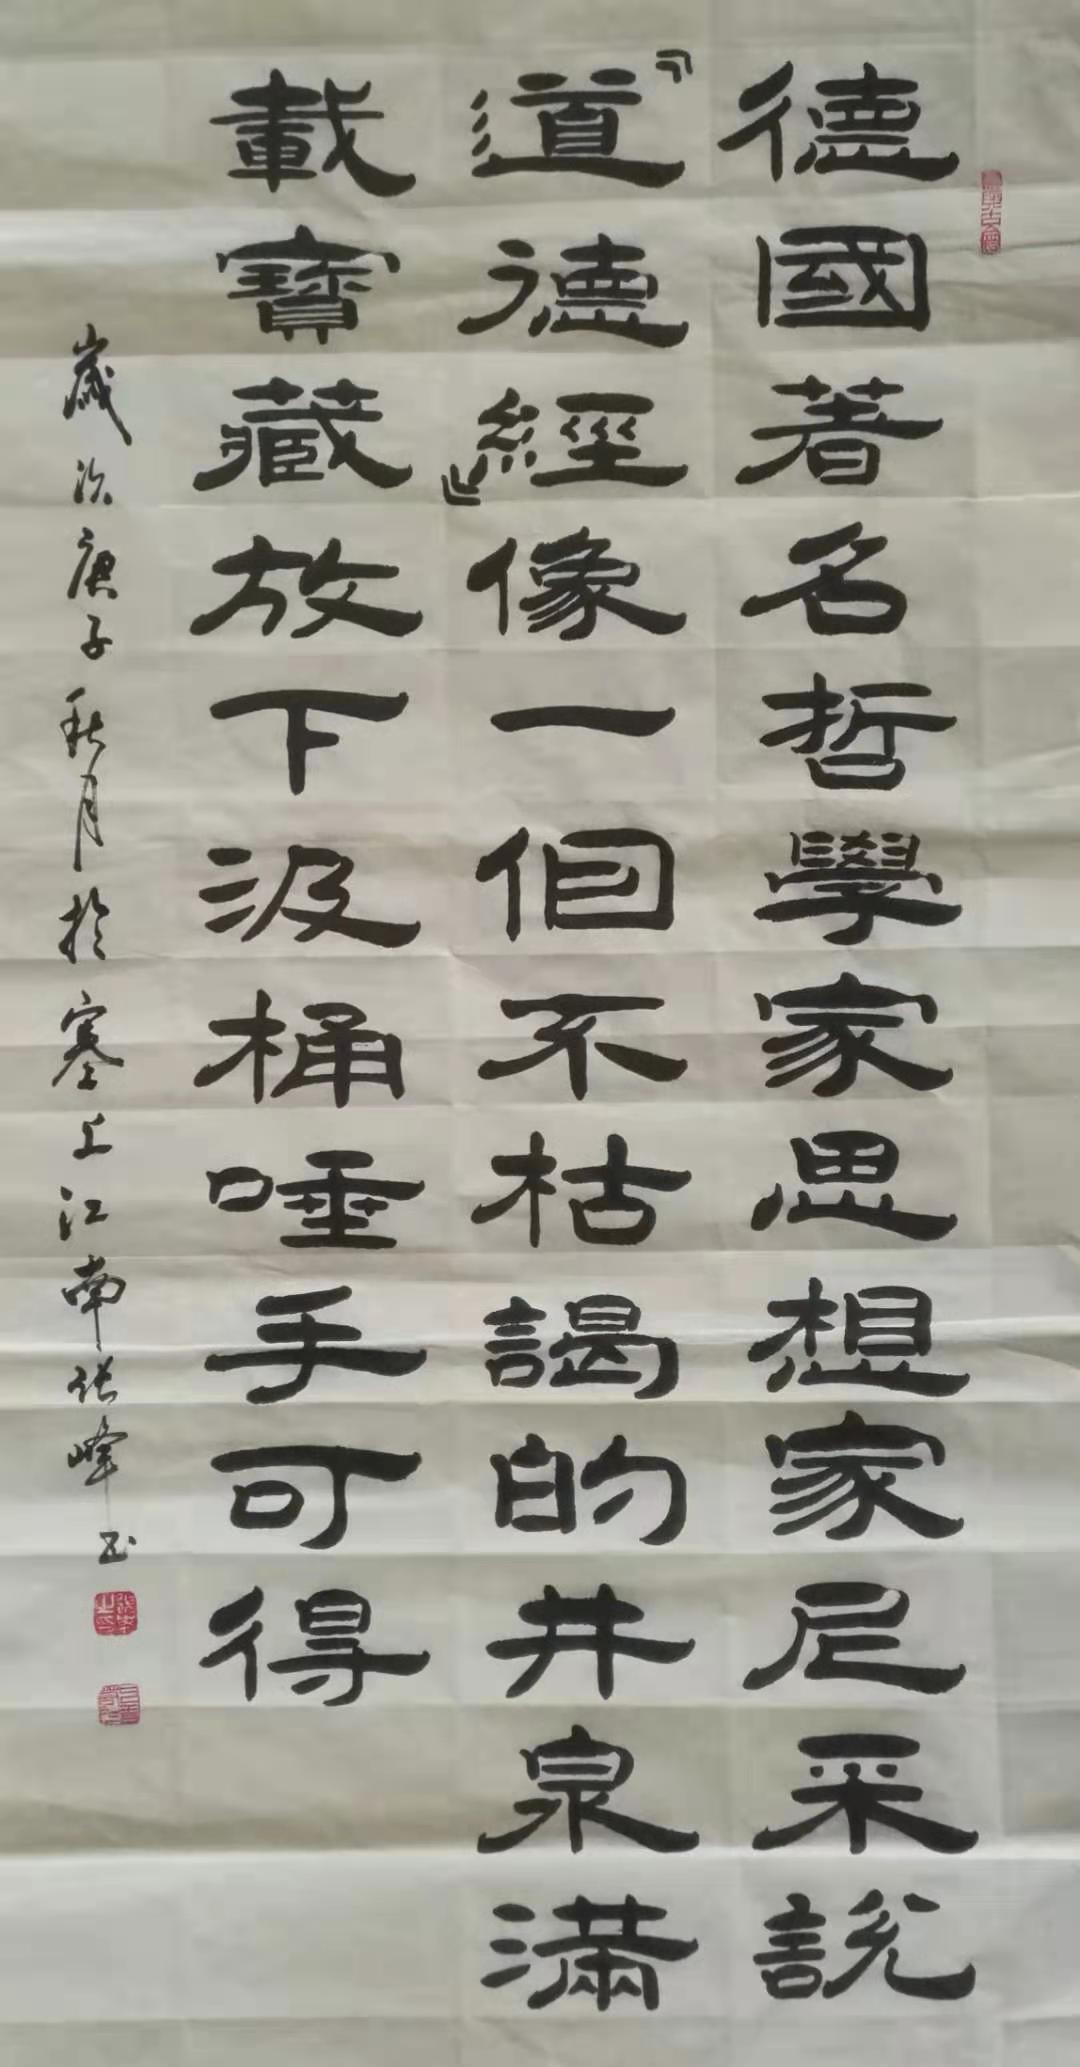 德國著名哲學家思想家尼采説
《道德經》像一個不枯謁的井泉滿
載寶藏放下汲桶唾手可得
歲次庚子秋月於塞上江南张峰书